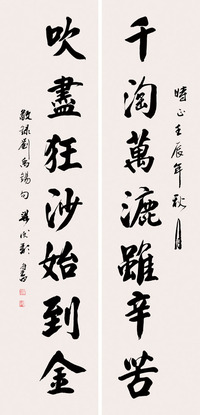 時正壬辰年秋月
千淘萬漉雖辛苦
吹盡狂沙始到金
敬錄劉禹錫句